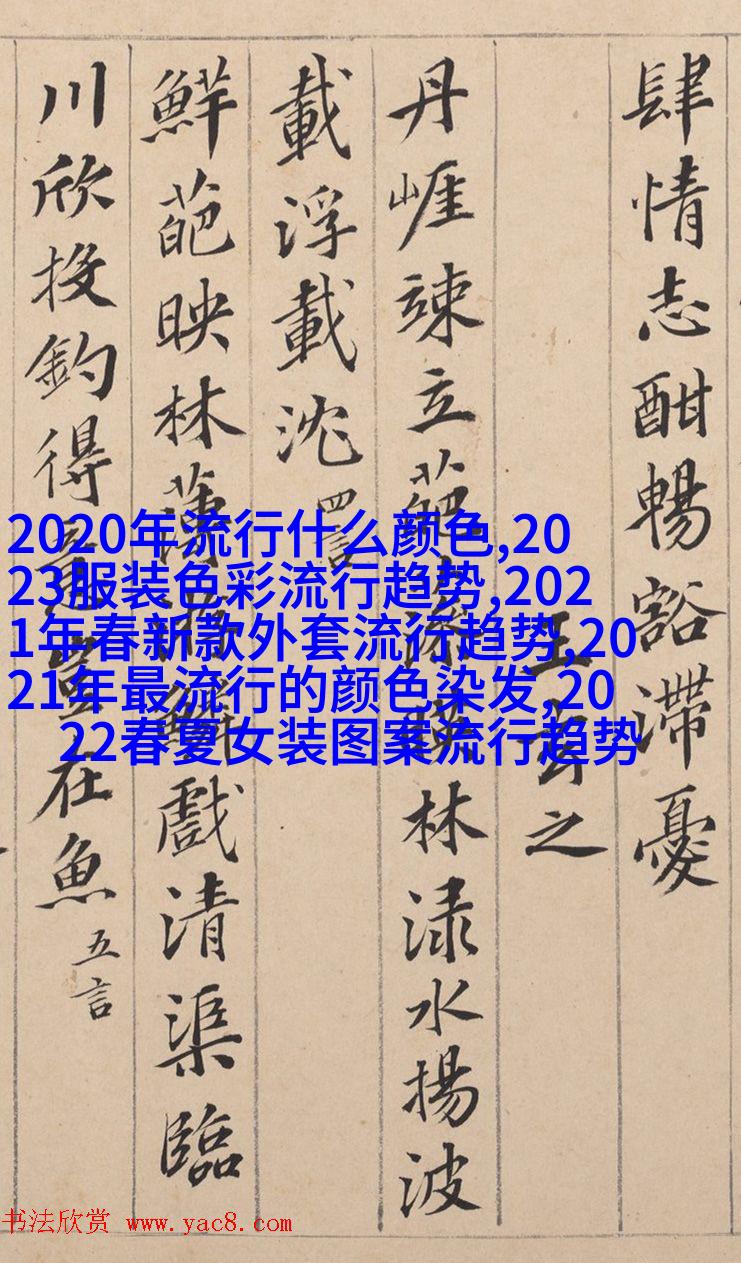 肆情志酣暢豁滯憂
王之
丹崕竦立葩藻暎林渌水揚波
載浮載沈 四言
鮮葩映林薄游鱗戲清渠臨
川欣投釣得意豈在魚 五言
2020年流行什么颜色,20
23服装色彩流行趋势,202
1年春新款外套流行趋势,20
21年最流行的颜色染发,20
22春夏女装图案流行趋势
书法欣赏 www.yac8.com